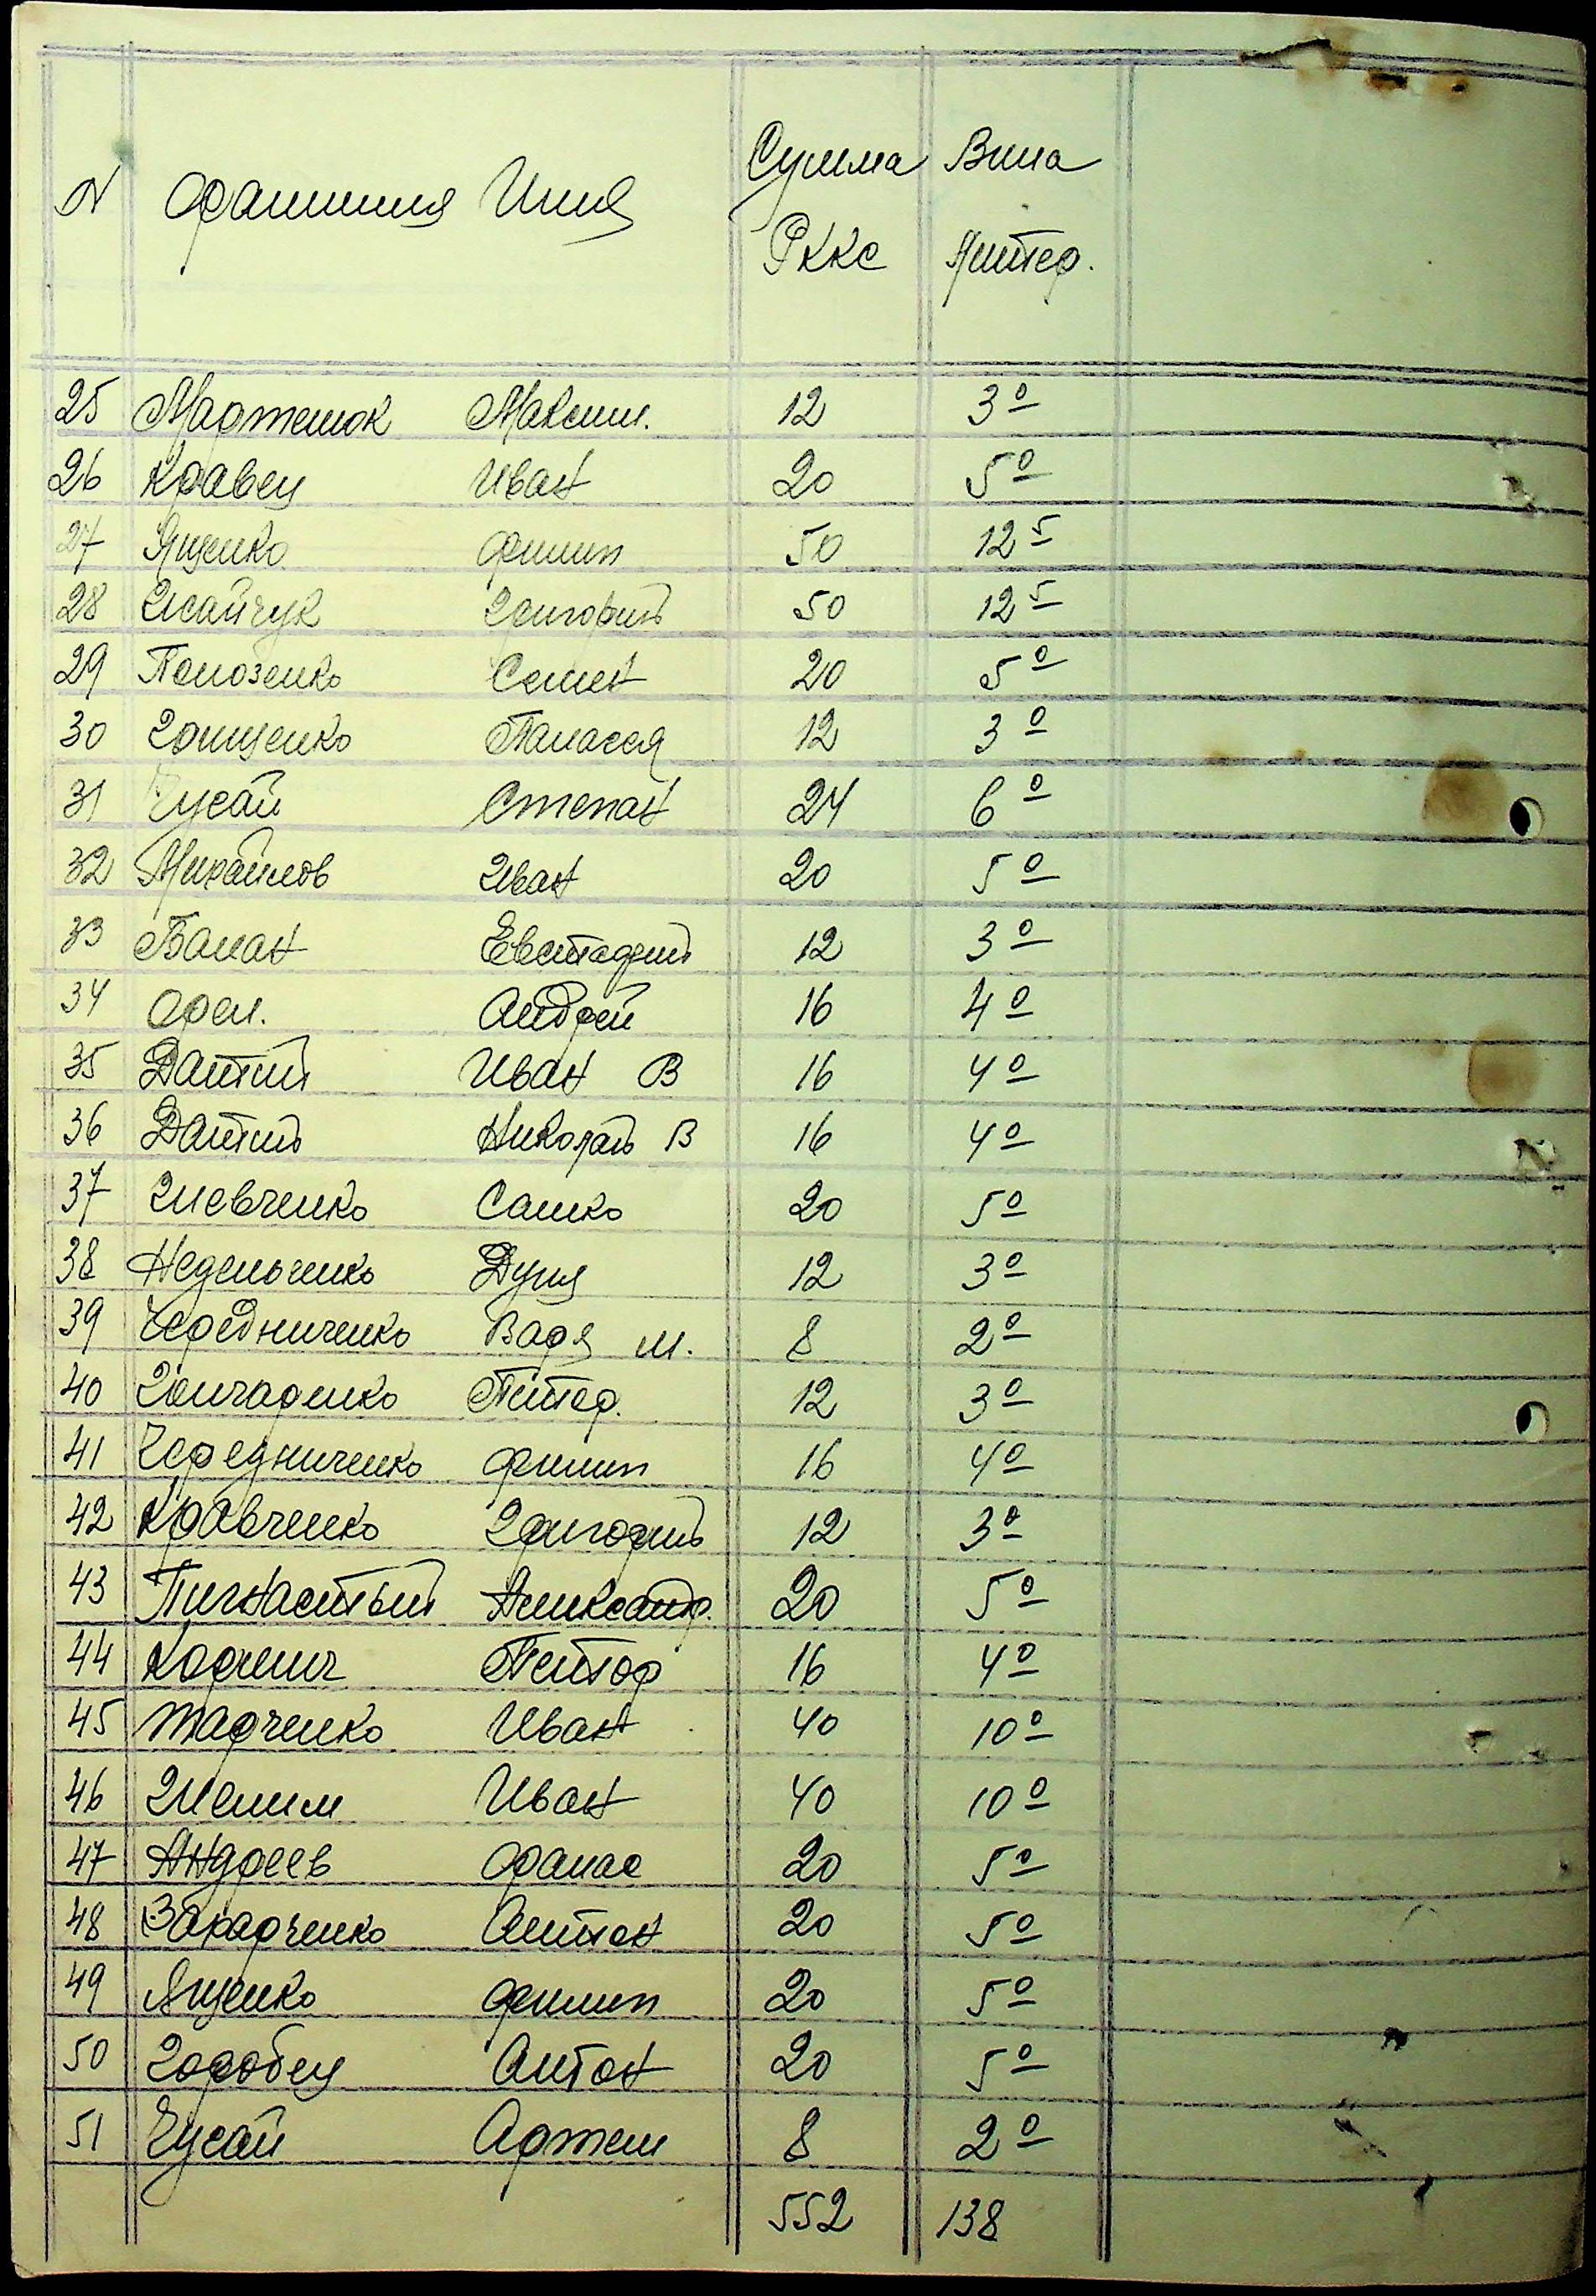 N Фамилия Имя Сумма Вина
Рккс Литер.
25 Мартенюк Максим. 12 3 0
26 Кравец Иван 20 5 0
27 Яценко Филип 50 12 5
28 Исайчук Григорий 50 12 5
29 Полозенко Семен 20 5 0
30 Грищенко Паласея 12 3 0
31 Чусай Степан 24 6 0
32 Михайлов Иван 20 5 0
33 Балан Евстафий 12 3 0
34 Орел. Андрей 16 4 0
35 Датий Иван В 16 4 0
36 Датий Николай В 16 4 0
37 Шевченко Сашко 20 5 0
38 Недельченко Дуня 12 3 0
39 Чередниченко Варя М. 8 2 0
40 Гончаренко Питер. 12 3 0
41 Чередниченко Филип 16 4 0
42 Кравченко Григорий 12 3 0
43 Пигнастый Александр. 20 5 0
44 Корчинг Пейтор 16 4 0
45 Тарченко Иван 40 10 0
46 Шелим Иван 40 10 0
47 Андреев Офанас 20 5 0
48 Захарченко Антон 20 5 0
49 Яценко Филип 20 5 0
50 Горобец Антон 20 5 0
51 Чусай Артем 8 2 0
552 138